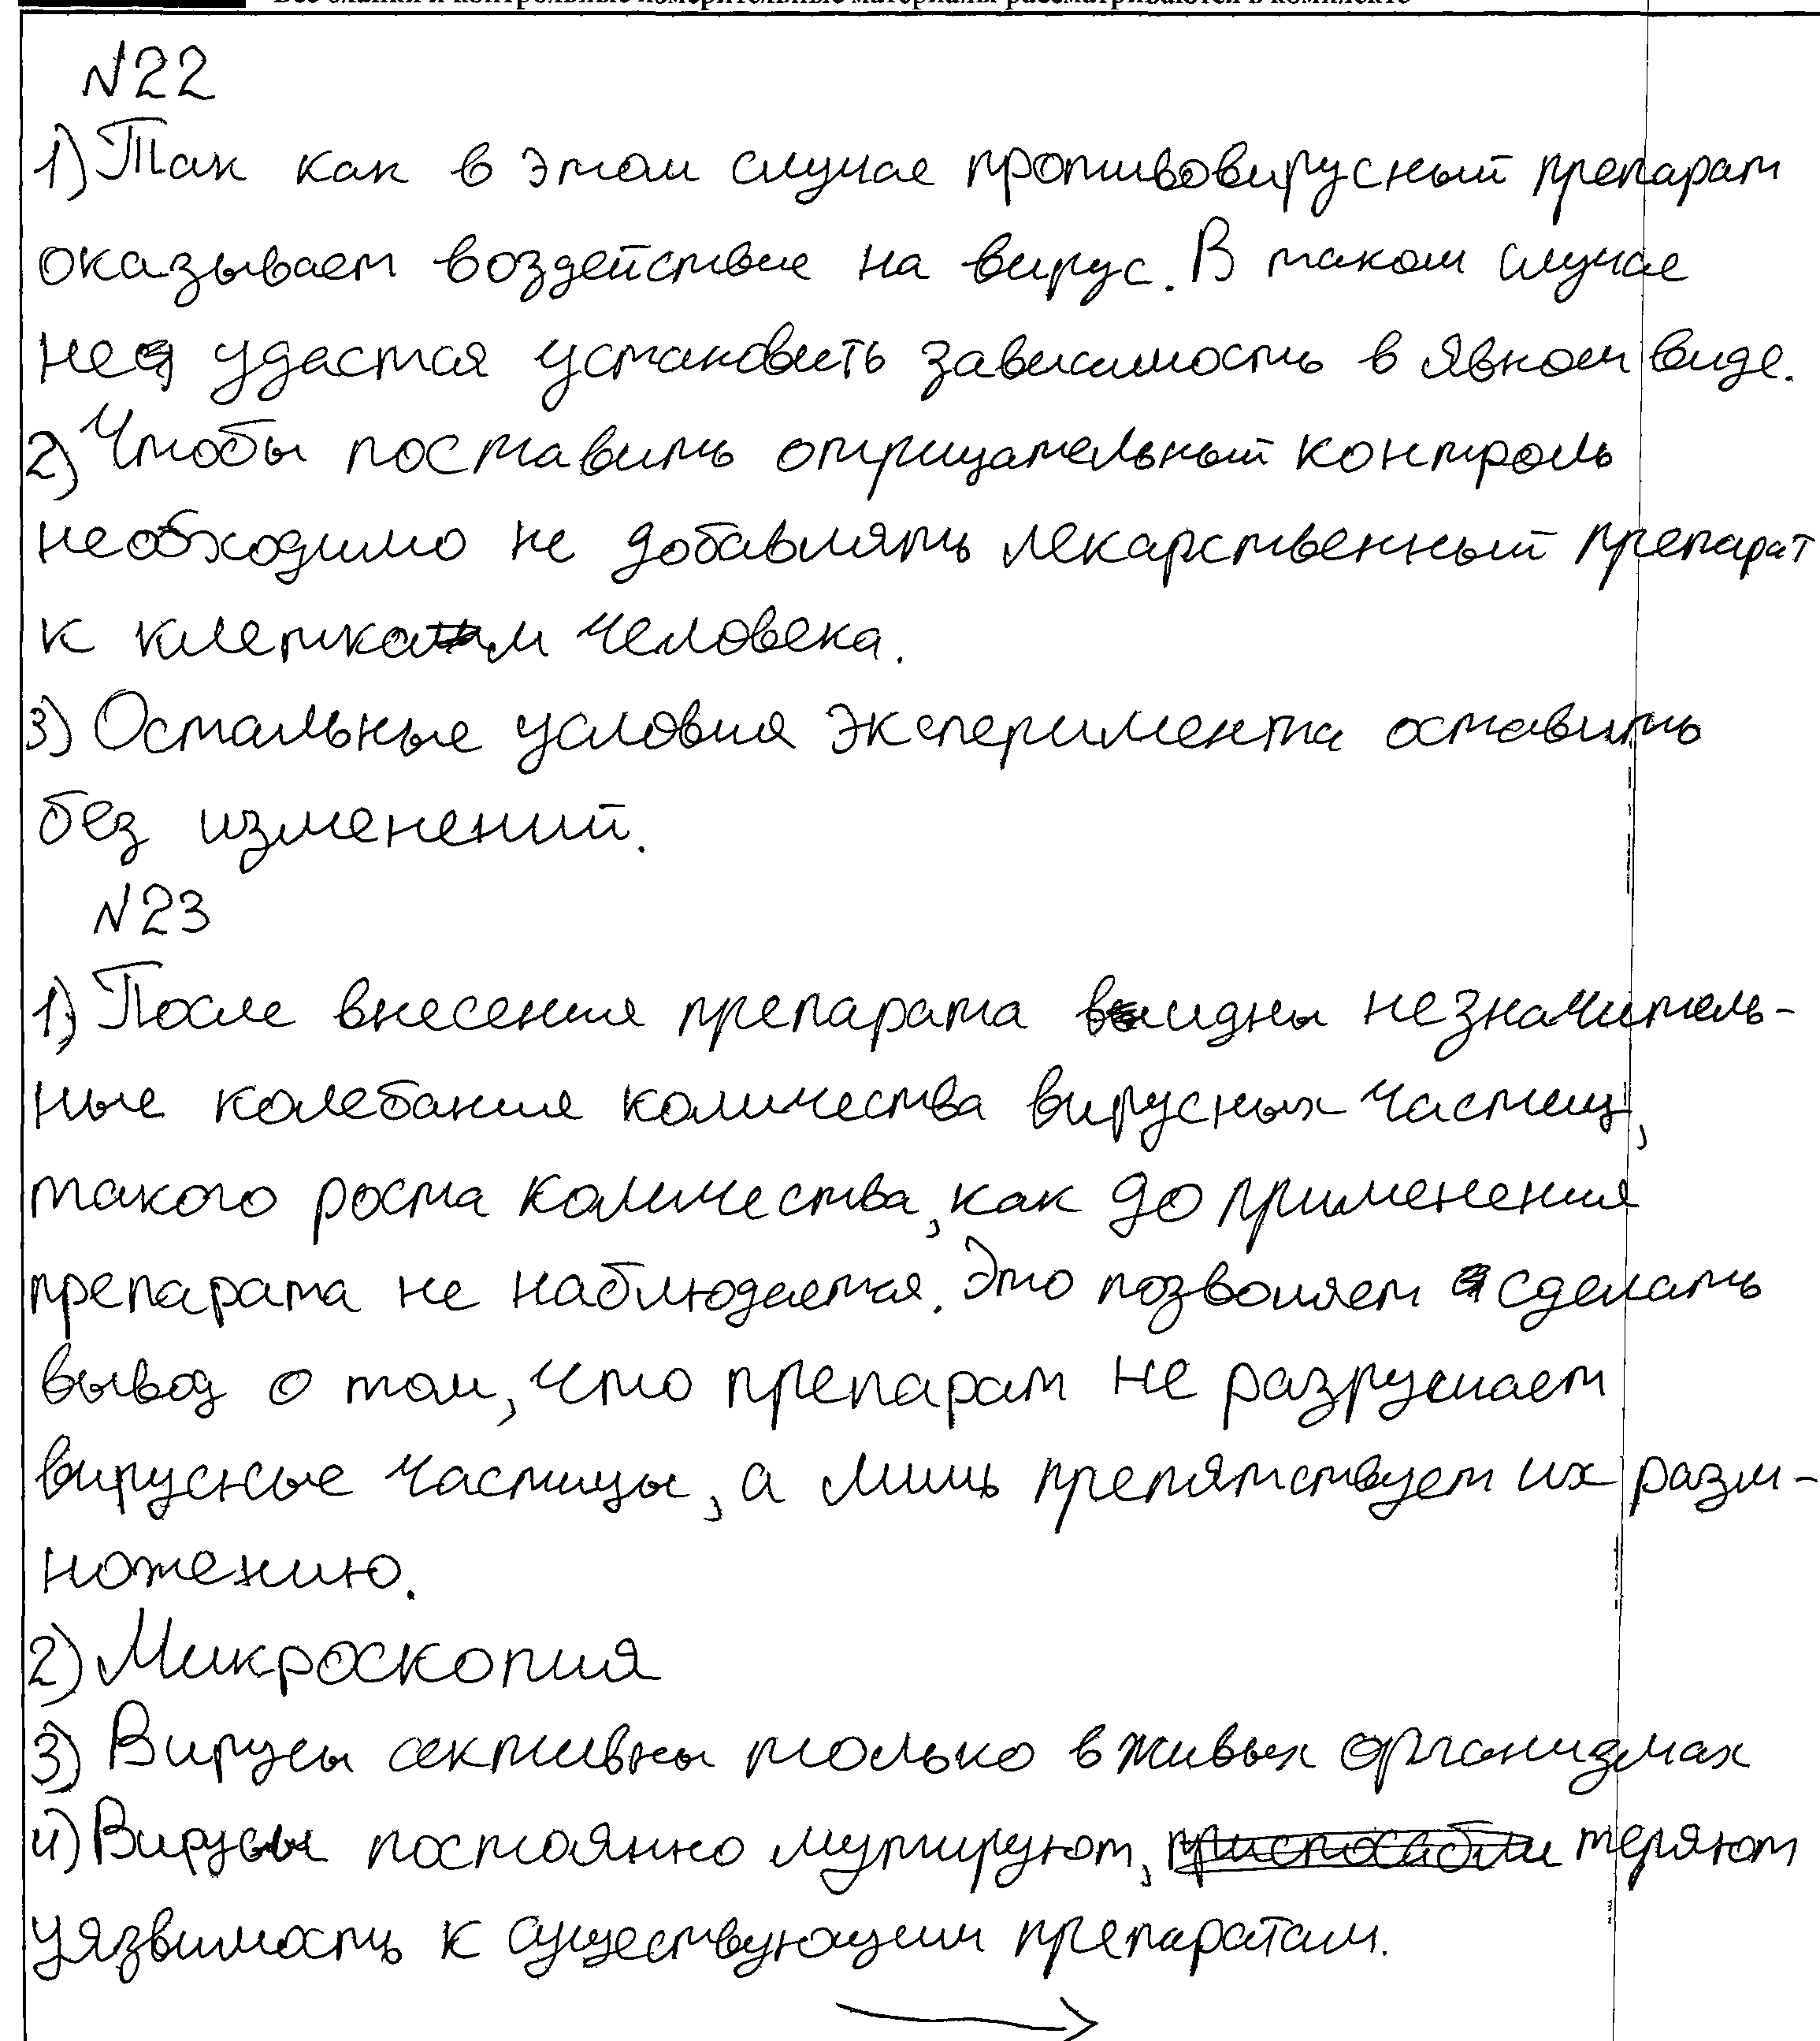 Все бланки и контрольные измерительные материалы рассматриваются в комплекте
№22
1) Так как в этом случае противовирусный препарат
оказывает воздействие на вирус. В таком случае
не удастся установить зависимость в явном виде.
2) Чтобы поставить отрицательный контроль
необходимо не добавлять лекарственный препарат
к клеткам человека.
3) Остальные условия эксперимента оставить
без изменений.
№23
1) После внесения препарата видны незначитель-
ные колебания количества вирусных частиц,
такого роста количества, как до применения
препарата не наблюдается. Это позволяет сделать
вывод о том, что препарат не разрушает
вирусные частицы, а лишь препятствует их разм-
ножению.
2) Микроскопия
3) Вирусы активны только в живых организмах
4) Вирусы постоянно мутируют, теряют
уязвимость к существующим препаратам.